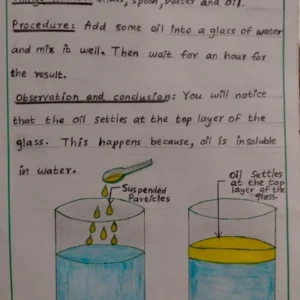 Glass, spoon, water and oil.
Procedure: Add some oil into a glass of water
and mix it well. Then wait for an hour for
the result.
Observation and conclusion: You will notice
that the oil settles at the top layer of the
glass. This happens because, oil is insoluble
in water.
Suspended
Particles
Oil Settles
at the top
layer of the
glass